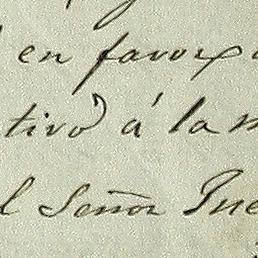 en favor
tivo á la m
l Señor Jue